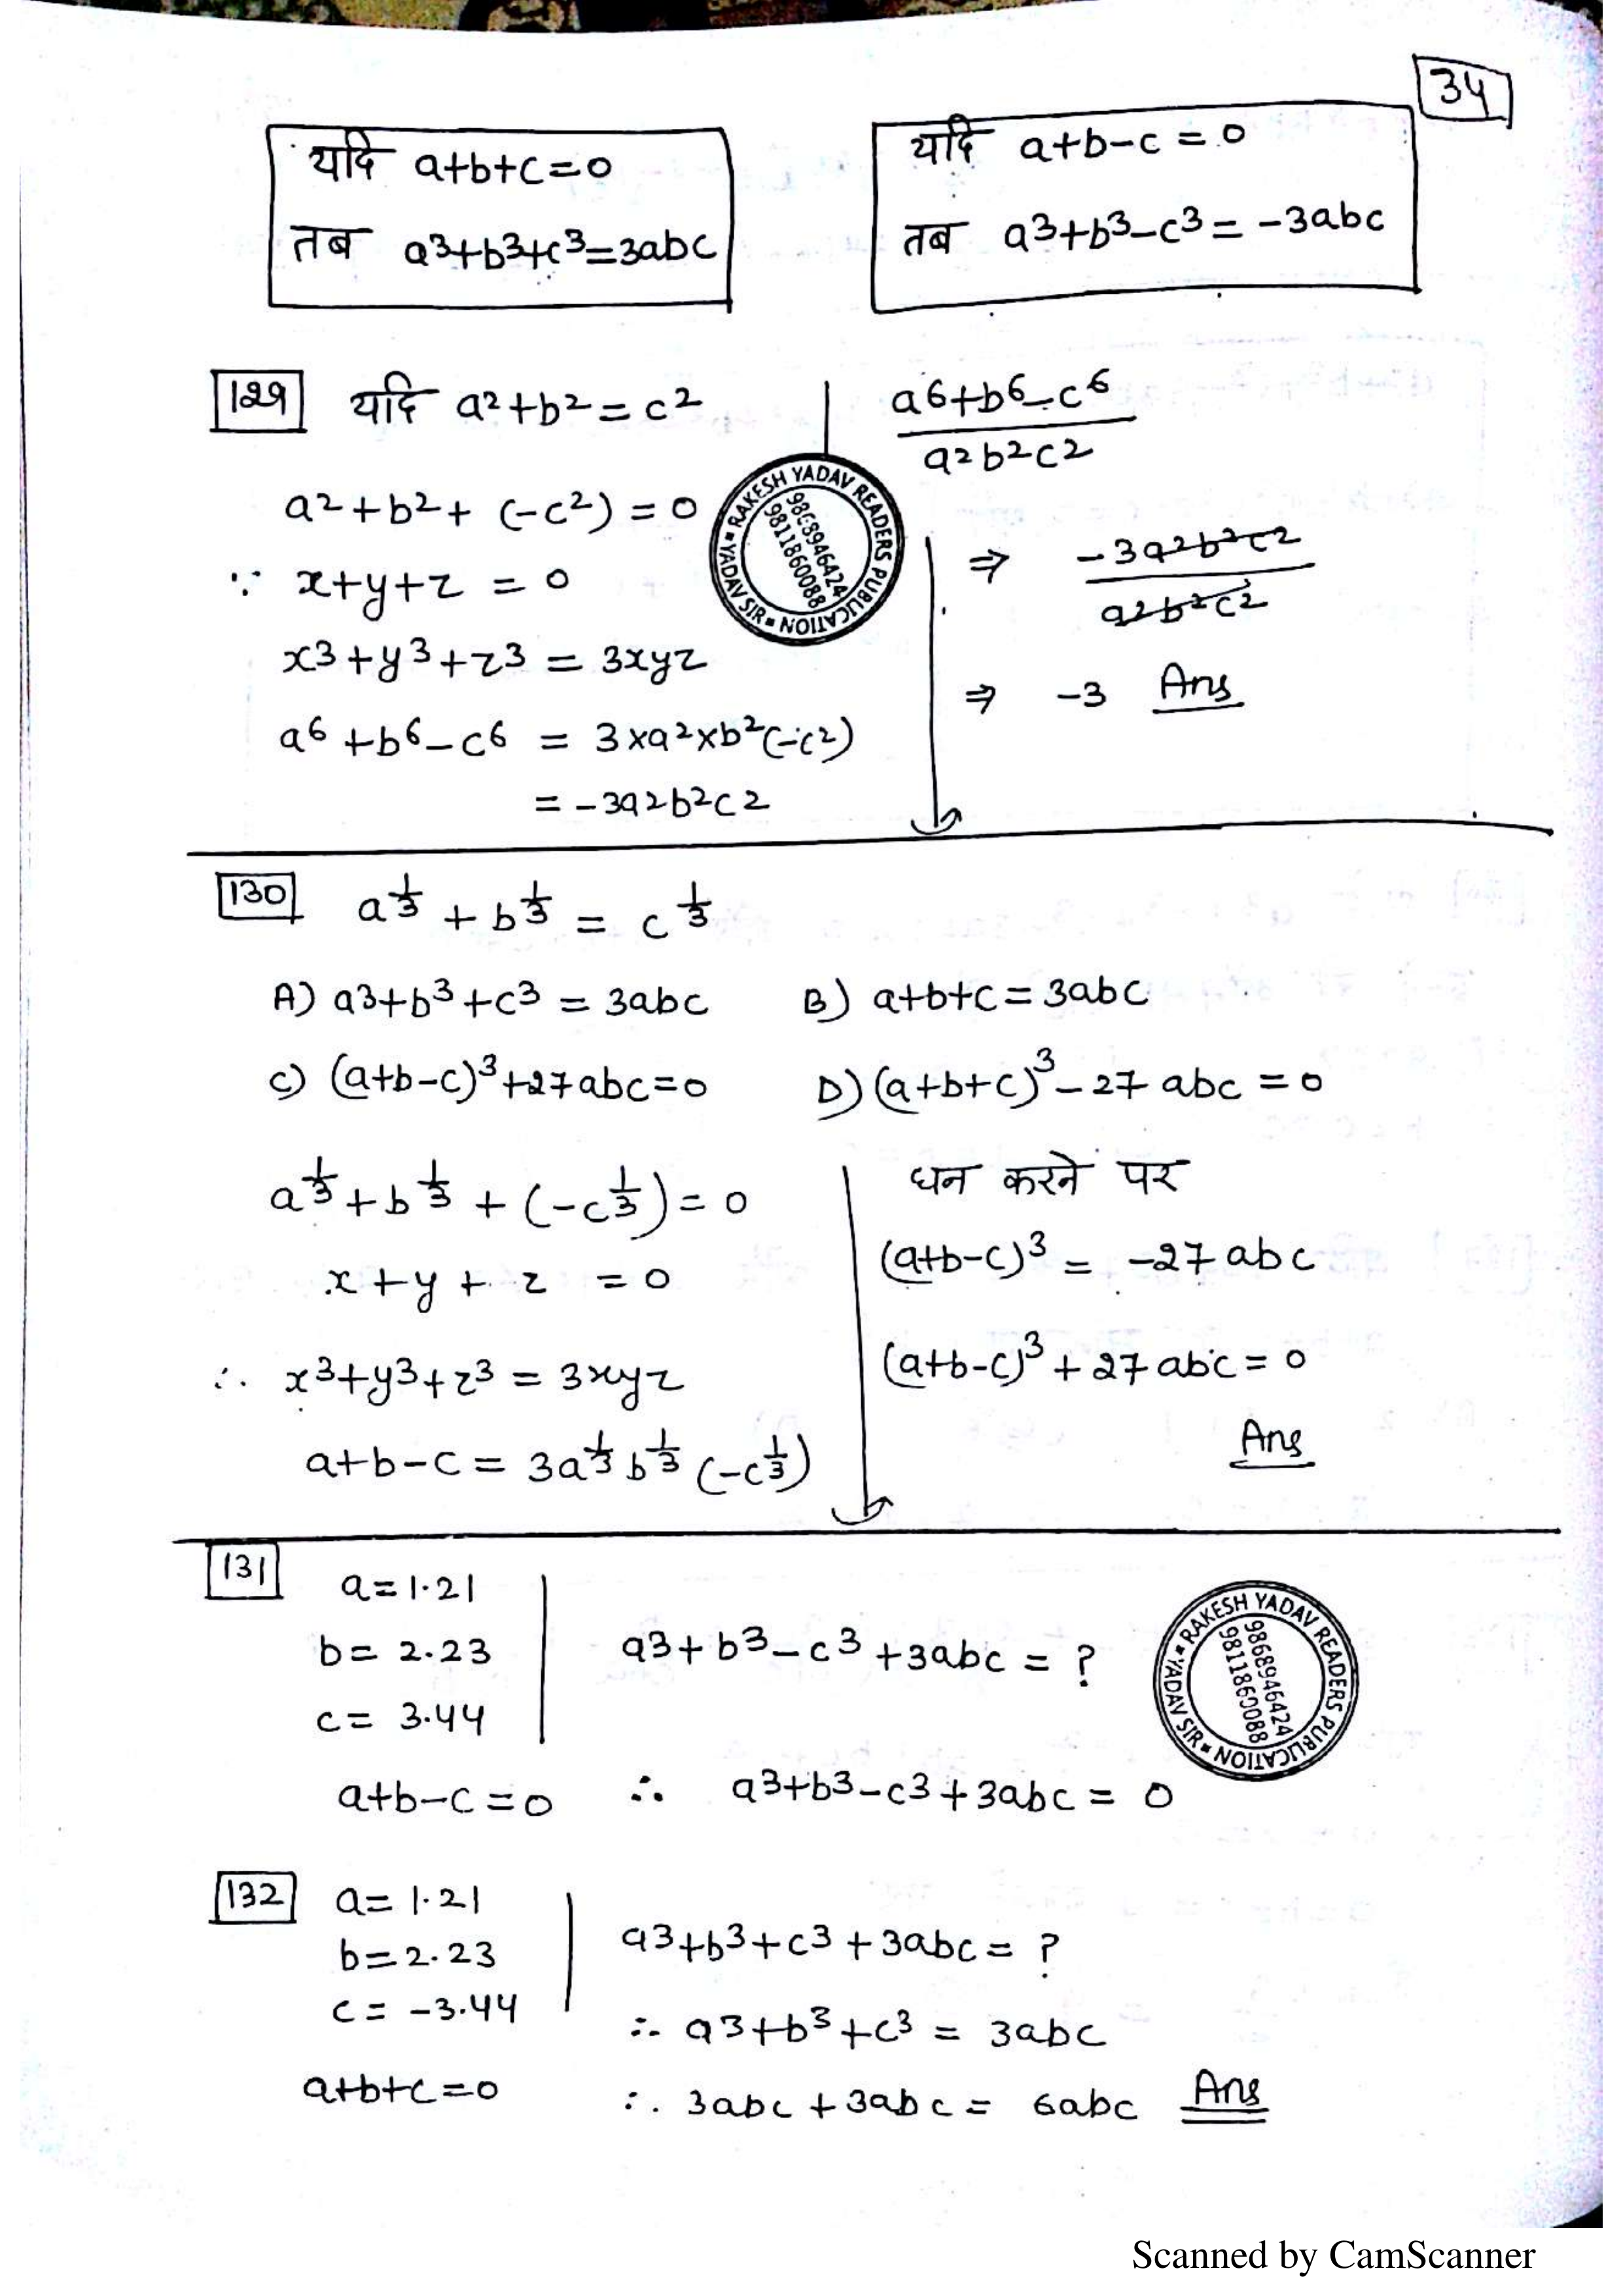 34
यदि a+b+c=0
तब a³+b³+c³=3abc
यदि a+b-c=0
तब a³+b³-c³=-3abc
129 यदि a²+b²=c²
a⁶+b⁶-c⁶
a²b²c²
a²+b²+(-c²)=0
∵ x+y+z=0
x³+y³+z³=3xyz
a⁶+b⁶-c⁶=3×a²×b²(-c²)
=-3a²b²c²
⇒ -3a²b²c²
a²b²c²
⇒ -3 Ans
RAKESH YADAV READERS PUBLICATION YADAV SIR
9868946424
9811860088
130 a^1/3 + b^1/3 = c^1/3
A) a³+b³+c³=3abc B) a+b+c=3abc
C) (a+b-c)³+27abc=0 D) (a+b+c)³-27abc=0
a^1/3 + b^1/3 + (-c^1/3)=0
x+y+z=0
∴ x³+y³+z³=3xyz
a+b-c=3a^1/3 b^1/3 (-c^1/3)
घन करने पर
(a+b-c)³=-27abc
(a+b-c)³+27abc=0
Ans
131 a=1.21
b=2.23
c=3.44
a³+b³-c³+3abc=?
a+b-c=0 ∴ a³+b³-c³+3abc=0
RAKESH YADAV READERS PUBLICATION YADAV SIR
9868946424
9811860088
132 a=1.21
b=2.23
c=-3.44
a+b+c=0
a³+b³+c³+3abc=?
∴ a³+b³+c³=3abc
∴ 3abc+3abc=6abc Ans
Scanned by CamScanner